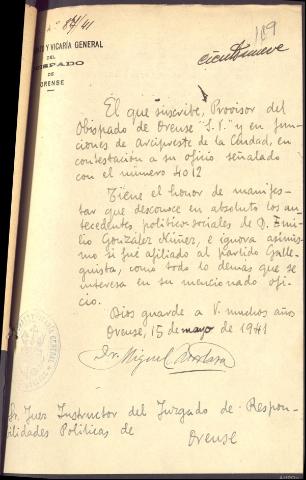 nº 87/41
109
ciento nueve
Y VICARÍA GENERAL
DEL
OBISPADO
DE
ORENSE
El que suscribe, Provisor del
Obispado de Orense "S. V." y en fun-
ciones de arcipreste de la Ciudad, en
contestación a su oficio señalado
con el número 4012
Tiene el honor de manifes-
tar que desconoce en absoluto los an-
tecedentes político-sociales de D. Emi-
lio González Núñez, e ignora asimis-
mo si fué afiliado al partido Galle-
guista, como todo lo demas que se
interesa en su mencionado ofi-
cio.
Dios guarde a V. muchos años
Orense, 15 de mayo de 1941
Dr. Miguel
Sr. Juez Instructor del Juzgado de Respon-
bilidades Políticas de
Orense